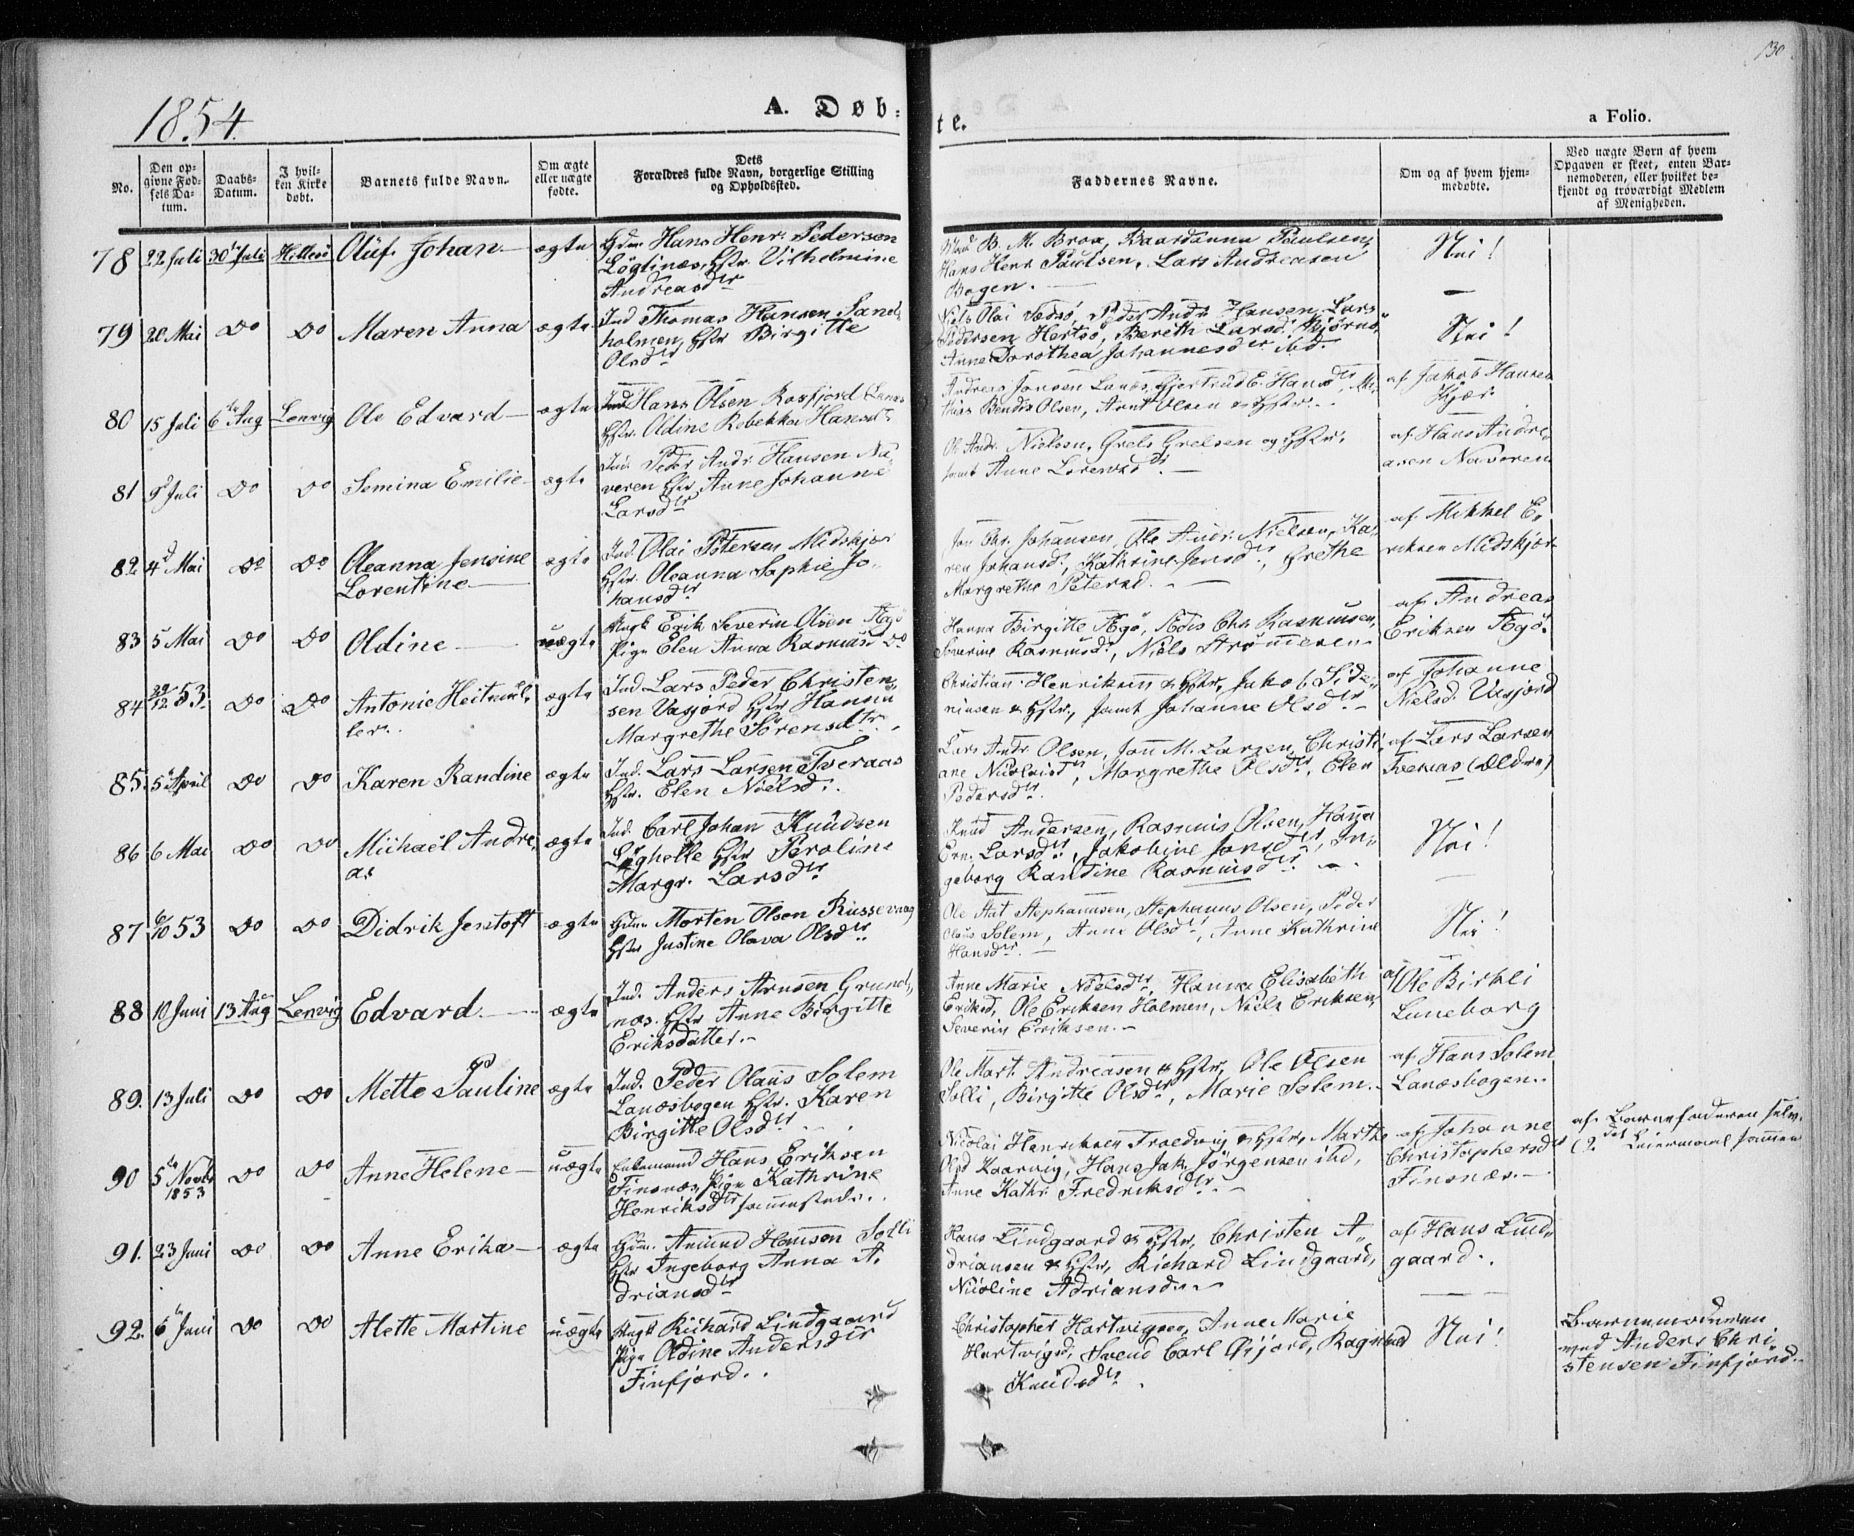 130
1854.
A. Døb=
te.
a Folio.
No.
Den op-
givne Fød-
sels Da-
tum.
Daabs-
Datum.
I hvil-
ken Kirke
døbt.
Barnets fulde Navn.
Om ægte
eller uægte
fødte.
Dets
Forældres fulde Navn, borgerlige Stilling
og Opholdssted.
Faddernes Navne.
Om og af hvem hjem-
medøbte.
Ved uægte Børn af hvem
Opgaven er skeet, enten Bar-
nemoderen, eller hvilket be-
kjendt og troværdigt Medlem
af Menigheden.
78 22 Juli 30te Juli Hillesö Oluf Johan ægte Hans Henr. Pedersen
Löglinæs, Hstr Vilhelmine
Andreasdr
B. M. Brox, Paulsen,
Hans Henr Paulsen, Lars Andreasen
Bogen.
Nei!
79 20 Mai Do Do Maren Anna ægte Ind Thomas Hansen Sand
holmen, Hstr Birgitte
Olsdr
Niels Olai Peder Andr Hansen, Lars
Pedersen Bereth Larsd
Anne Dorothea Johannesdr ibd
Nei!
80 15 Juli 6te Aug Lenvig Ole Edvard ægte Ind Hans Olsen Rosfjord
Hstr. Odine Rebekka Hansd
Andreas Jensen Lanes, Gjertrud E. Hansdr, Ma-
thias Bendix Olsen, Arnt Olsen & Hstr.
af Jakob Hansen
Kjær
81 9 Juli Do Do Semina Emilie ægte Ind. Peder Andr. Hansen Na
veren Hstr Anne Johanne
Larsdr
Ol. Andr. Nielsen, Grels Grelsen og Hstr.
samt Anne Lorentsdr
af Hans Andre
asen Naveren
82 4d Mai Do Do Oleanna Jensine
Lorentine
ægte Ind. Olai Petersen Midskjær
Hstr. Oleanna Sophie Jo-
hansdr
Jon Chr. Johansen, Ole Andr. Nielsen, Ka-
ren Johansd., Kathrine Jensdr, Grethe
Margrethe Petersd.
af Mikkel E-
riksen Midskjær
83 5 Mai Do Do Oldine uægte Ungk Erik Severin Olsen
Pige Elen Anna Rasmusd Do
Hanna Birgitte Chr. Rasmusen,
Severine Rasmusdr, Niels Strømmesen
af Andreas
Eriksen
84 29/12 53 Do Do Antonie Heitmul-
ler.
ægte Ind. Lars Peder Christen
sen Vasjord Hstr Hanna
Margrethe Sörensdtr.
Christian Henriksen & Hstr, Jakob
niusen & Hstr., samt Johanne Olsdr
af Johanne
Nielsd. Vasjord
85. 5te April Do Do Karen Randine ægte Ind. Lars Larsen Tveraas
Hstr. Elen Nielsd.
Lars Andr. Olsen, Jon M. Larsen, Christi-
ane Nicolaisdr, Margrethe Olsdr, Elen
Pedersdr.
af Lars Larsen
Tveraas (Ældre)
86 6 Mai Do Do Michael Andre
as
ægte Ind. Carl Johan Knudsen
Hstr Peroline
Margr. Larsdr
Knud Andersen, Rasmus Olsen, Hanna
Ern. Larsdr, Jakobine Jonsdr, In-
geborg Randine Rasmusdr.
Nei!
87 6/10 53 Do Do Didrik Jentoft ægte Morten Olsen Russevaag
Hstr Justine Olava Olsdr
Ole Stephanusen, Stephanus Olsen, Peder
Claus Solem, Anne Olsdr, Anne Kathrine
Hansdr.
Nei!
88 10 Juni 13 Aug Lenvig Edvard ægte Ind. Anders Arnsen Grund
næs. Hstr Anne Birgitte
Eriksdatter.
Anne Marie Nielsdr, Hanna Elisabeth
Eriksd, Ole Eriksen Holmen, Niels Eriksen,
Severin Eriksen.
af Ole Birkli
Luneborg
89. 13 Juli Do Do Mette Pauline ægte Ind. Peder Olaus Solem
Lanæsbogen Hstr. Karen
Birgitte Olsdr
Ole Mart. Andreasen & Hstr, Ole Olsen
Solli, Birgitte Olsdr, Marie Solem.
af Hans Solem
Lanæsbogen.
90 5te Novbr
1853
Do Do Anne Helene uægte Enkemand Hans Eriksen
Finsnæs, Pige Kathrine
Henriksdr sammesteds.
Nicolai Henriksen & Hstr, Marthe
Olsd Kaarvig, Hans Jak. Jörgensen ibd,
Anne Kathr. Fredriksdr.
af Johanne
Christophersdr
Finsnæs.
af Barnefaderen selv.
(2det Leiermaal sammen
91. 23 Juni Do Do Anne Erika ægte Amund Hansen Solli
Hstr Ingeborg Anna A-
driansdr
Hans Lindgaard & Hstr, Christen A-
driansen & Hstr, Richard Lindgaard,
Nicoline Adriansd.
af Hans Lind-
gaard.
92. 6te Juni Do Do Alette Martine uægte Ungk Richard Lindgaard
Pige Oldine Andersdr
Finfjord.
Christopher Hartvigsen, Anne Marie
Hartvigsd, Svend Carl Gisjord, Ragnhild
Knudsdr.
Nei!
Barnemoderen
med Anders Chri
stensen Finfjord.